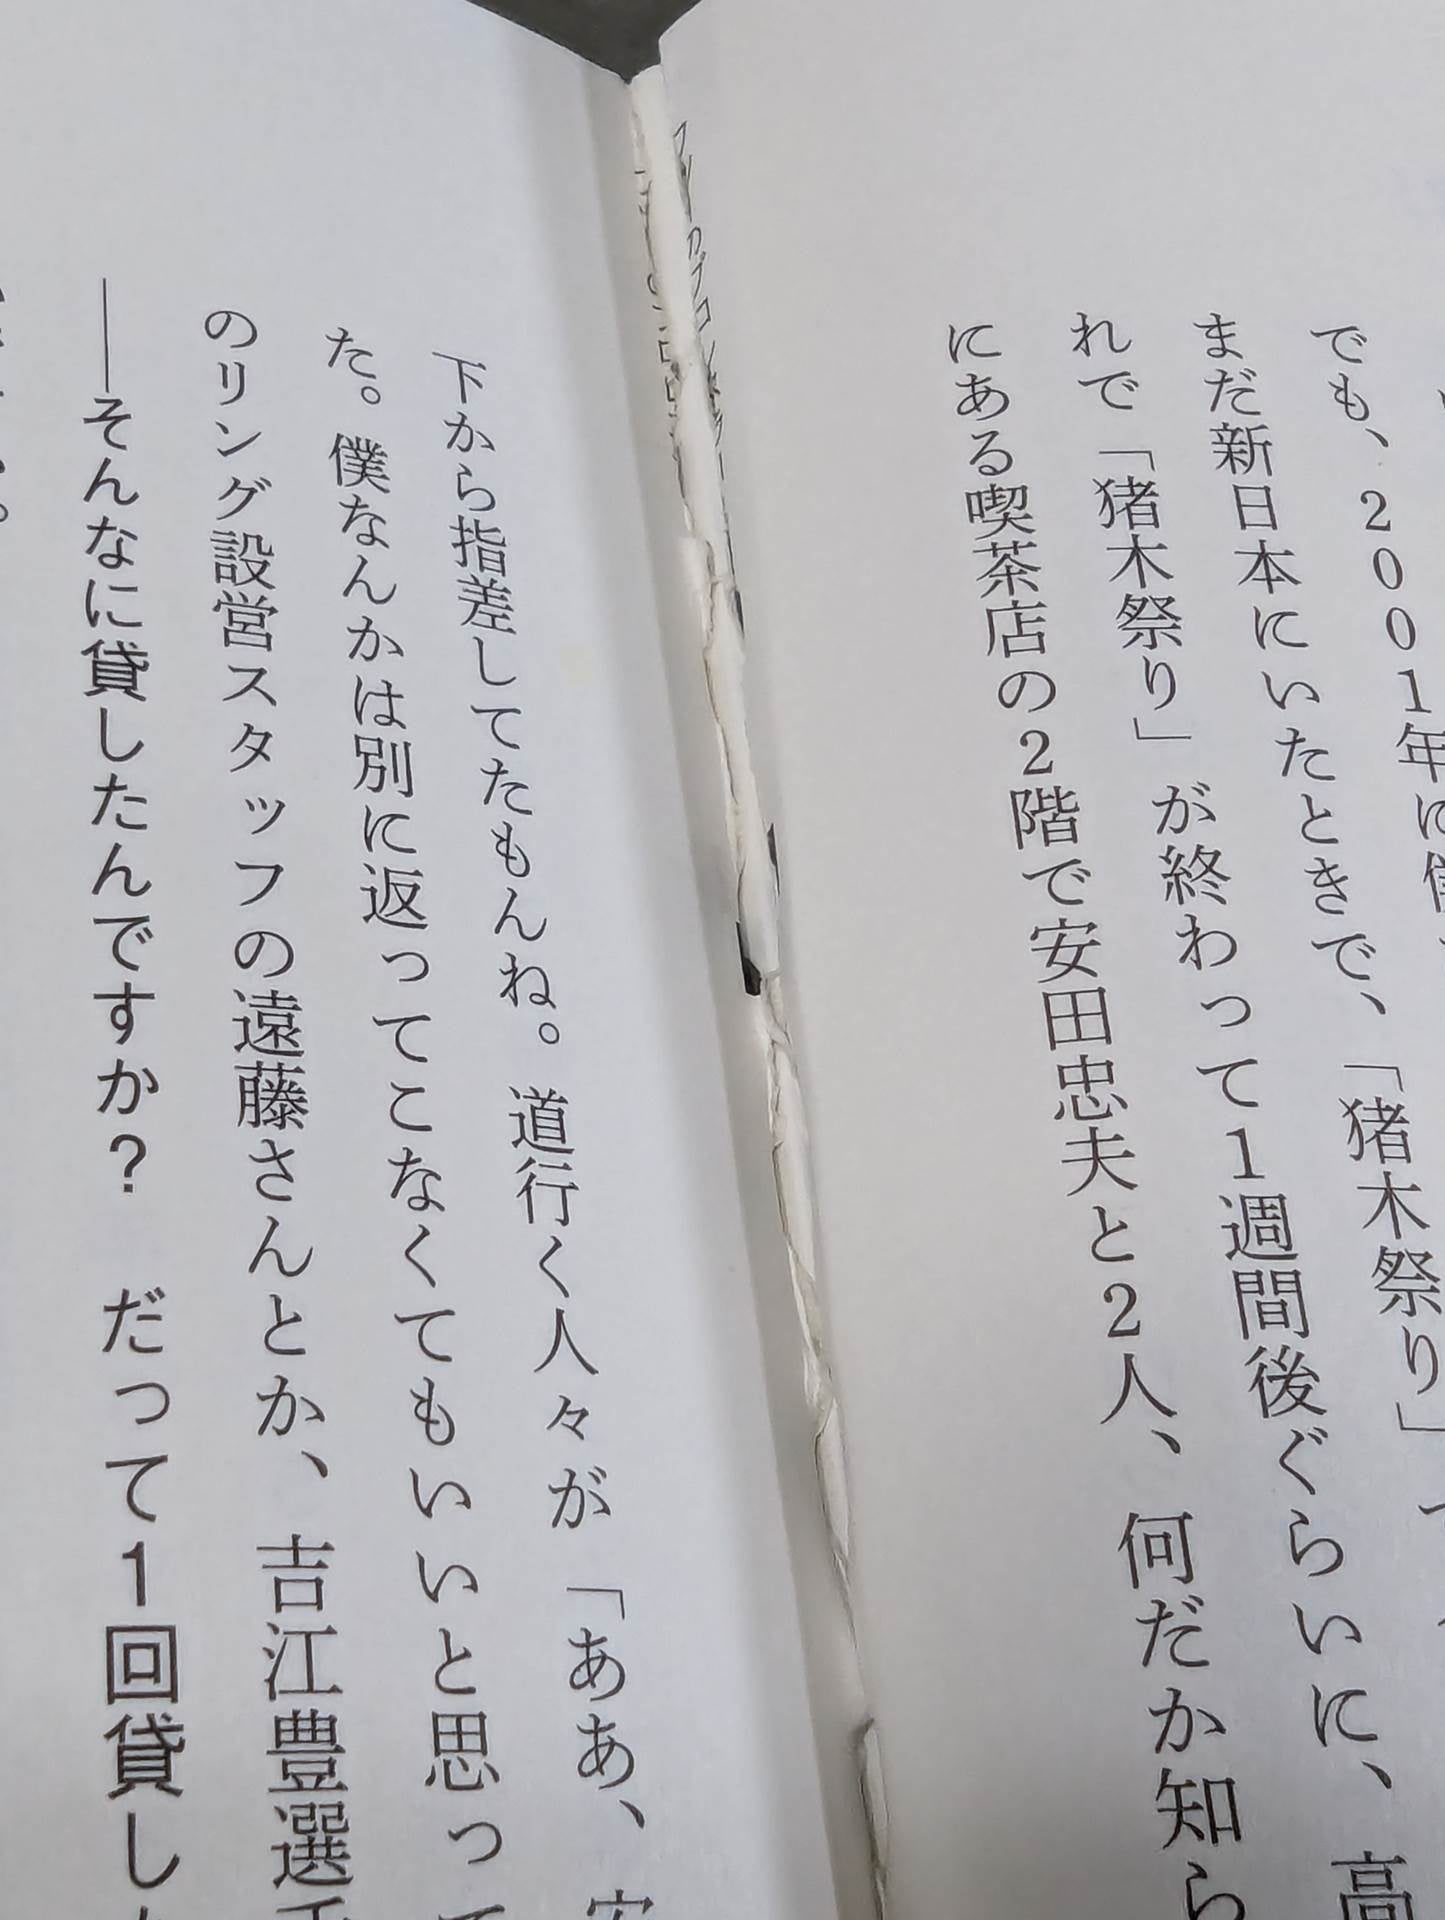 でも、2001年に
まだ新日本にいたときで、「猪木祭り」
れで「猪木祭り」が終わって1週間後ぐらいに、高
にある喫茶店の2階で安田忠夫と2人、何だか知ら
下から指差してたもんね。道行く人々が「ああ、安
た。僕なんかは別に返ってこなくてもいいと思って
のリング設営スタッフの遠藤さんとか、吉江豊選手
――そんなに貸したんですか? だって1回貸し